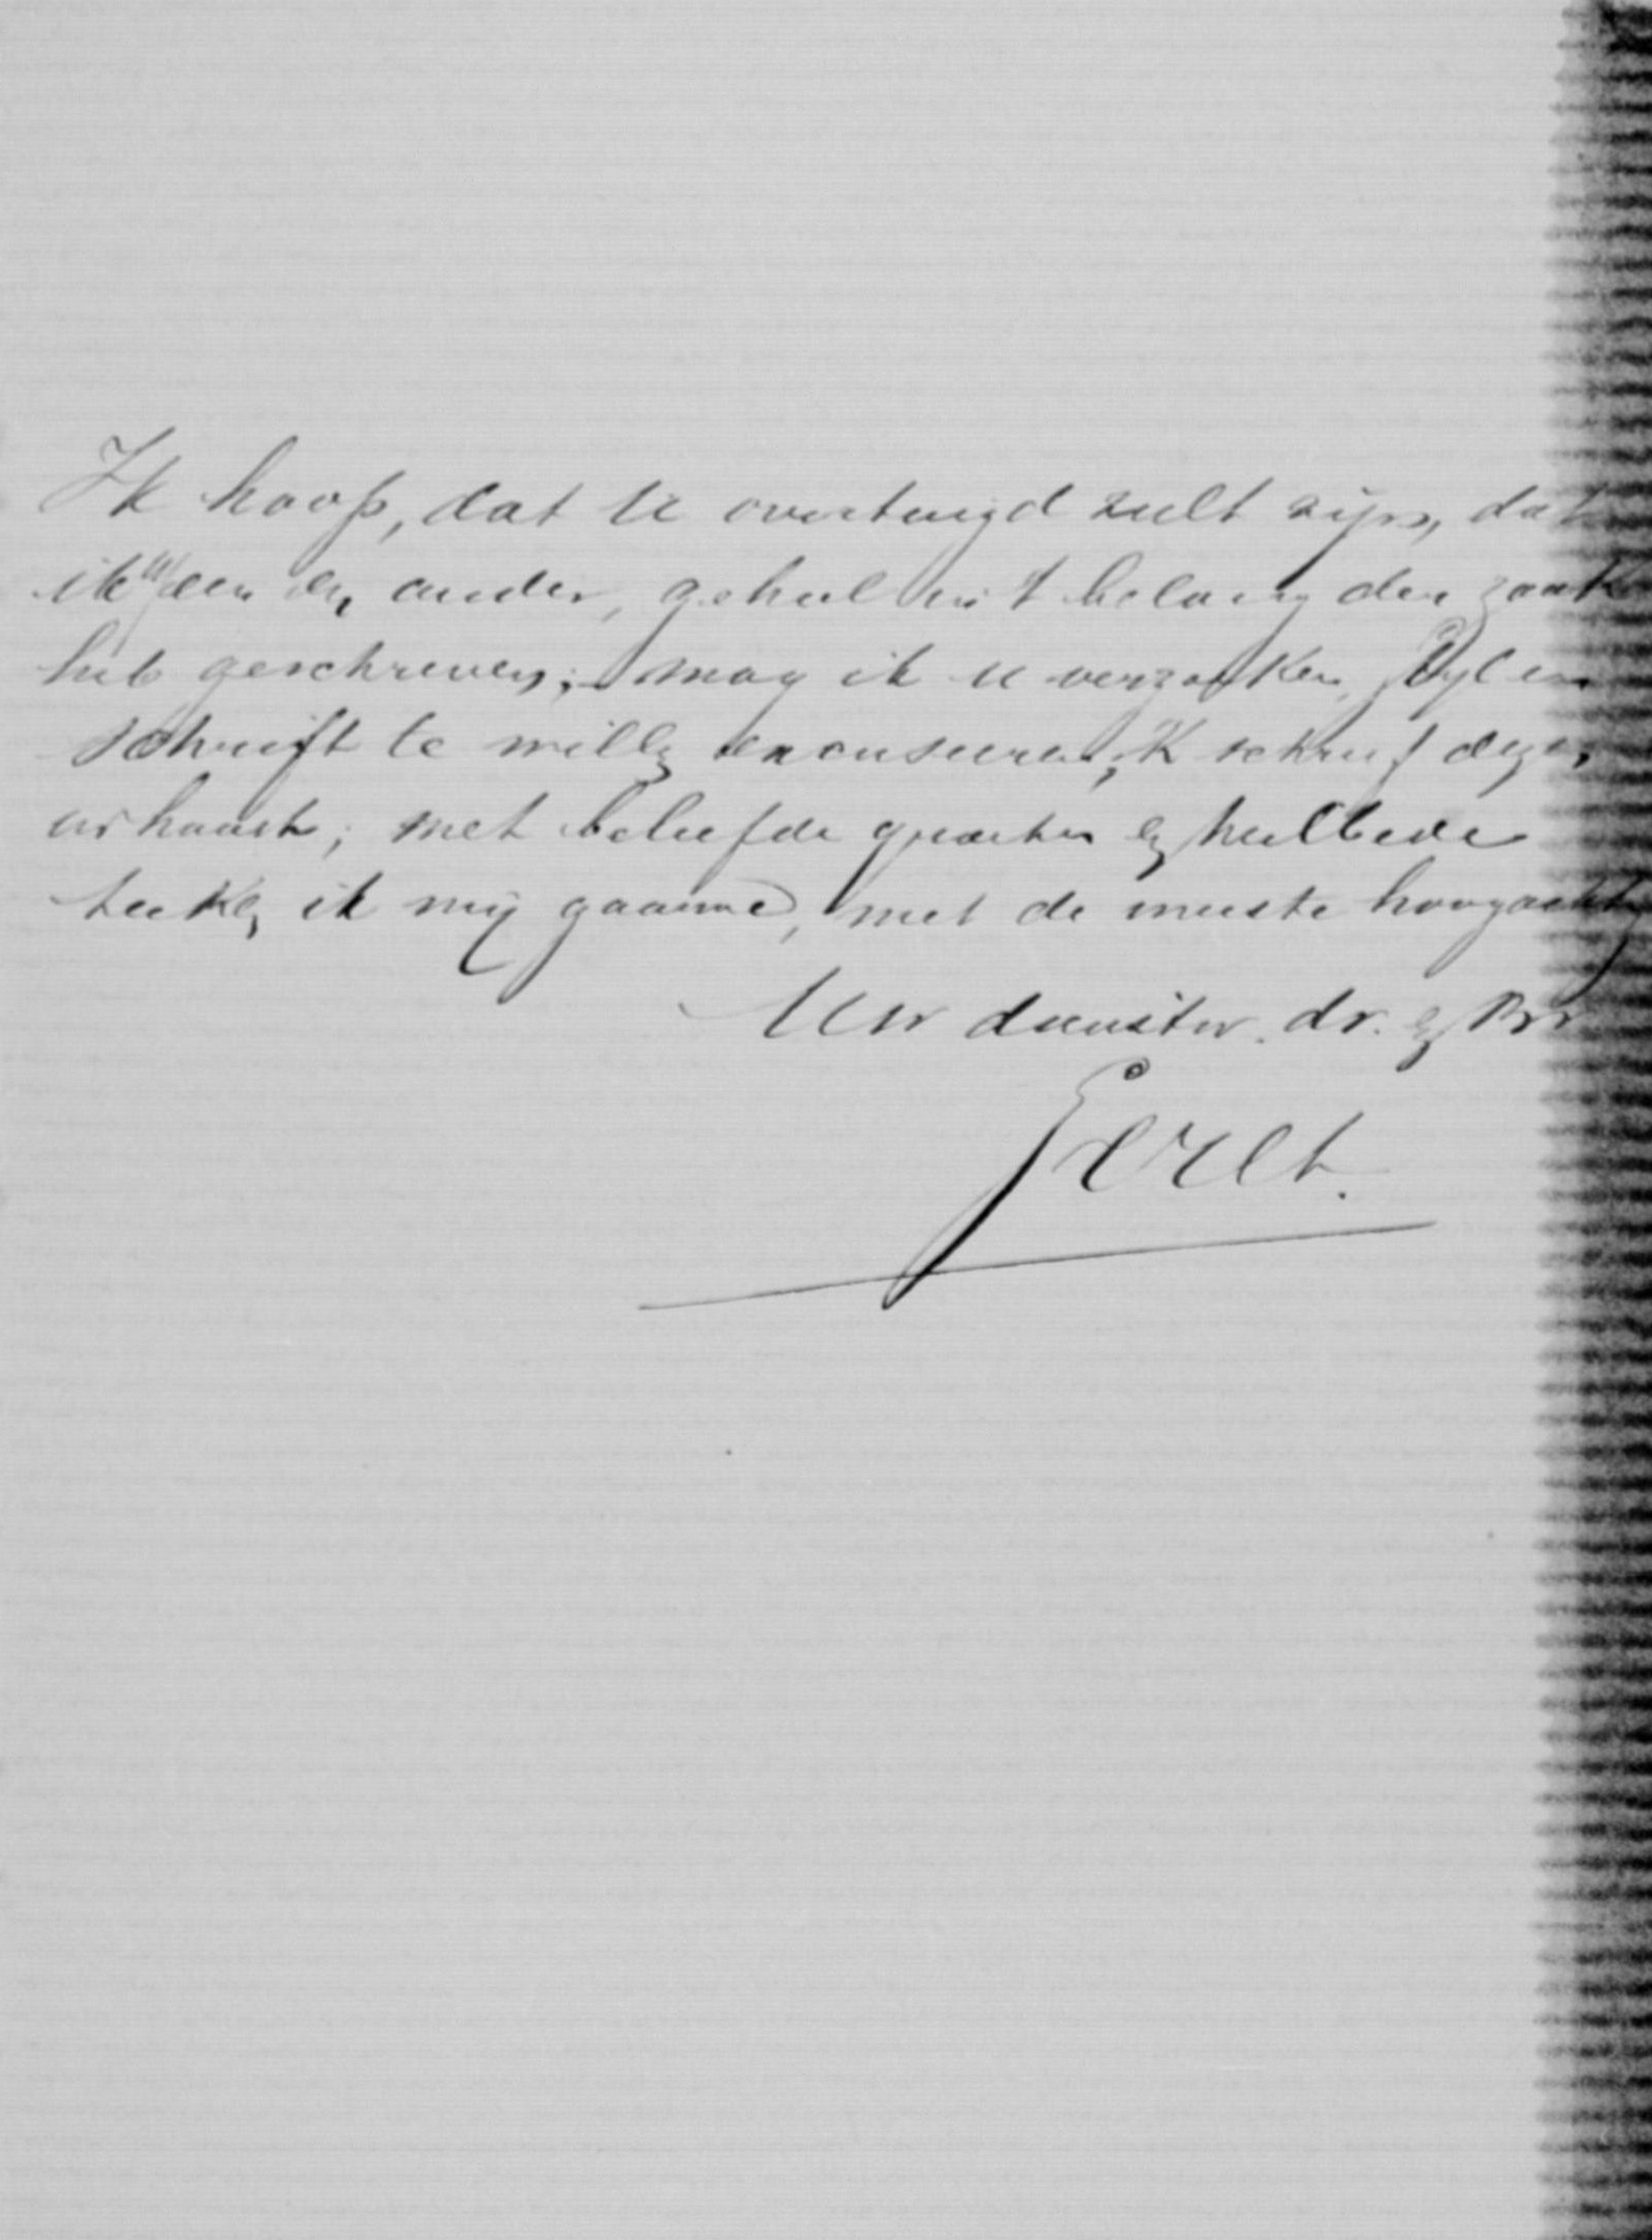 Ik hoop, dat U overtuigd zult zijn, dat
ik 't een en ander, geheel in 't belang der zaak
heb geschreven; mag ik U verzoeken, Styl en
schrift te willen excuseeren, ik schreef deze,
in haast; met beleefde groeten en heilbede
teeken ik mij gaarne, met de meeste hoogachting
Uw dienstw. dr. en Br
Geret.